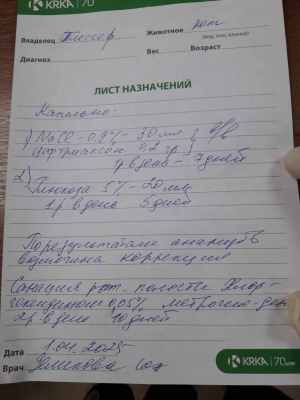 KRKA 70
Владелец Тиссер Животное кот
(вид, пол, кличка)
Диагноз Вес Возраст
ЛИСТ НАЗНАЧЕНИЙ
Капельно:
1) NaCl - 0,9% - 30 мл } в/в
Цефтриаксон 0,2 гр }
1 р в день - 7 дней
2)
Глюкоза 5% - 20 мл
1 р в день 5 дней
По результатам анализов
возможна коррекция
Санация рот. полости Хлор-
гексидином 0,05% Метрогил-дента
2 р в день 10 дней
Дата 1.04.2025
Врач
KRKA 70